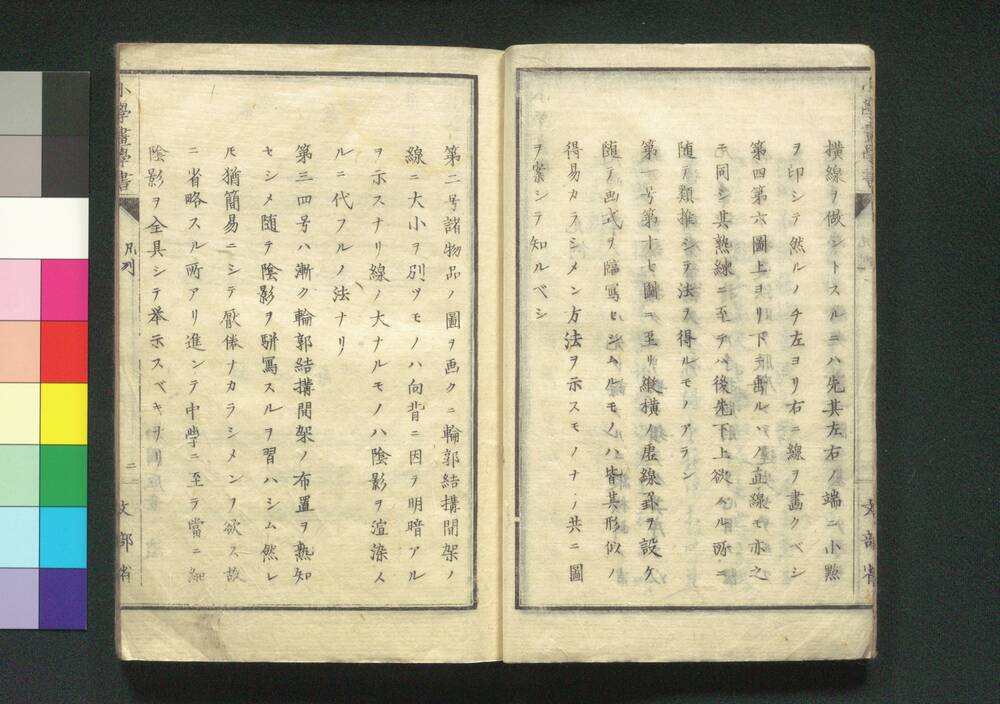 小學畫學書
文部省
横線ヲ做ントスルニハ先其左右ノ端ニ小㸃
ヲ印シテ然ルノチ左ヨリ右ニ線ヲ畫クベシ
第四第六圖上ヨリ下ヘ畫ルノ直線モ亦之
ニ同シ其熟練ニ至テハ後先下上欲スル所ニ
随テ類推シテ法ヲ得ルモノアラン
第一号第十七圖ニ至リ縦横ノ虚線罫ヲ設ケ
随テ画式ヲ臨寫セシムルモノハ皆其形似ノ
得易カラシメン方法ヲ示スモノナリ共ニ圖
ヲ案シテ知ルベシ
第二号諸物品ノ圖ヲ画クニ輪郭結搆間架ノ
線ニ大小ヲ別ツモノハ向背ニ因テ明暗アル
ヲ示スナリ線ノ大ナルモノハ陰影ヲ渲染ス
ルニ代フルノ法ナリ
第三四号ハ漸ク輪郭結搆間架ノ布置ヲ熟知
セシメ随テ陰影ヲ駢寫スルヲ習ハシム然レ
モ猶簡易ニシテ厭倦ナカラシメンヿヲ欲ス故
ニ省略スル所アリ進ンテ中學ニ至ラ當ニ細
陰影ヲ全具シテ举示スベキナリ
小學畫學書
凡例
二
文部省